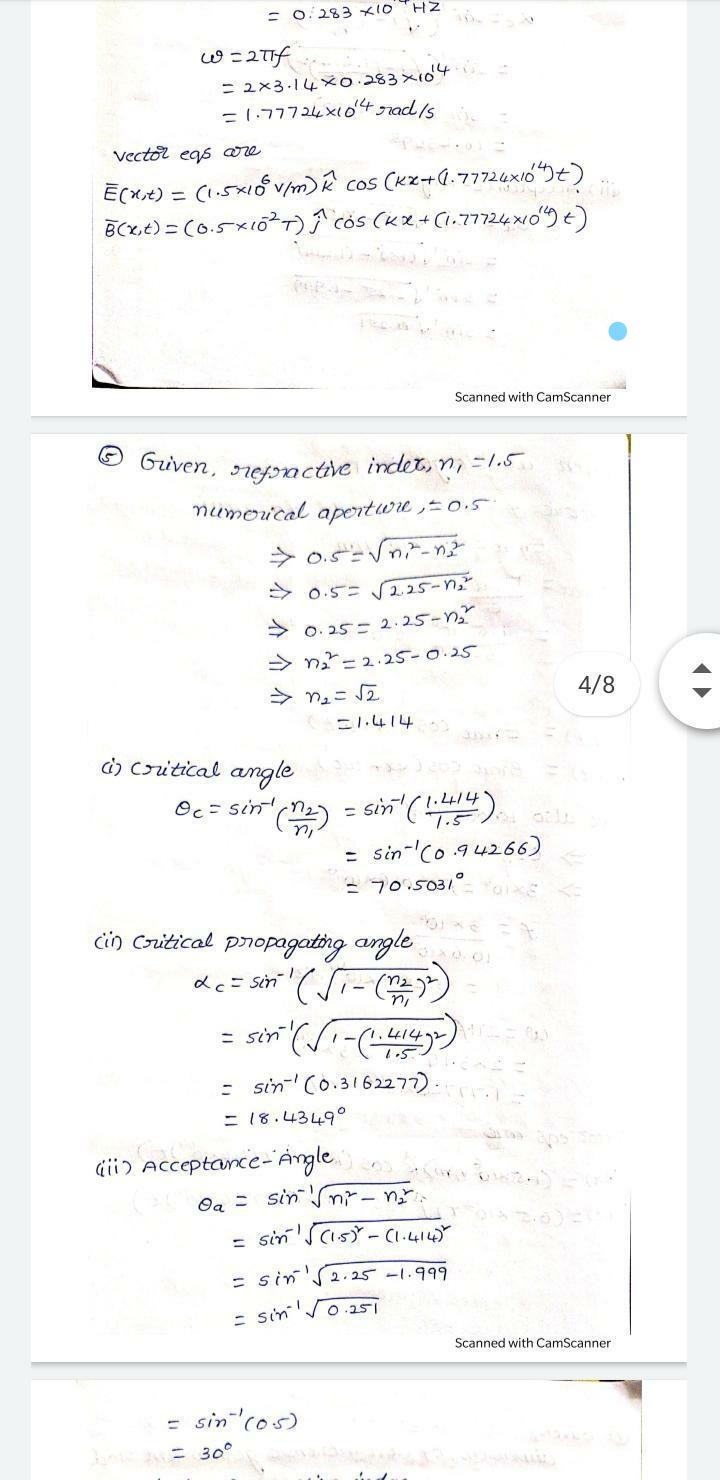 = 0.283 ×10¹⁴ HZ
ω = 2πf
= 2×3.14×0.283×10¹⁴
= 1.77724×10¹⁴ rad/s
vector eqs are
E̅(x,t) = (1.5×10⁶ V/m) k̂ cos (kx+(1.77724×10¹⁴)t)
B̅(x,t) = (0.5×10⁻²T) ĵ cos (kx + (1.77724×10¹⁴)t)
Scanned with CamScanner
⑤ Given, refractive index, n₁ = 1.5
numerical aperture, = 0.5
⇒ 0.5 = √n₁²-n₂²
⇒ 0.5 = √2.25-n₂²
⇒ 0.25 = 2.25-n₂²
⇒ n₂² = 2.25-0.25
⇒ n₂ = √2
= 1.414
4/8
(i) Critical angle
θc = sin⁻¹(n₂/n₁) = sin⁻¹(1.414/1.5)
= sin⁻¹(0.94266)
= 70.5031°
(ii) Critical propagating angle
αc = sin⁻¹(√1-(n₂/n₁)²)
= sin⁻¹(√1-(1.414/1.5)²)
= sin⁻¹(0.3162277).
= 18.4349°
(iii) Acceptance-Angle
θa = sin⁻¹√n₁² - n₂²
= sin⁻¹√(1.5)² - (1.414)²
= sin⁻¹√2.25 - 1.999
= sin⁻¹√0.251
Scanned with CamScanner
= sin⁻¹(0.5)
= 30°